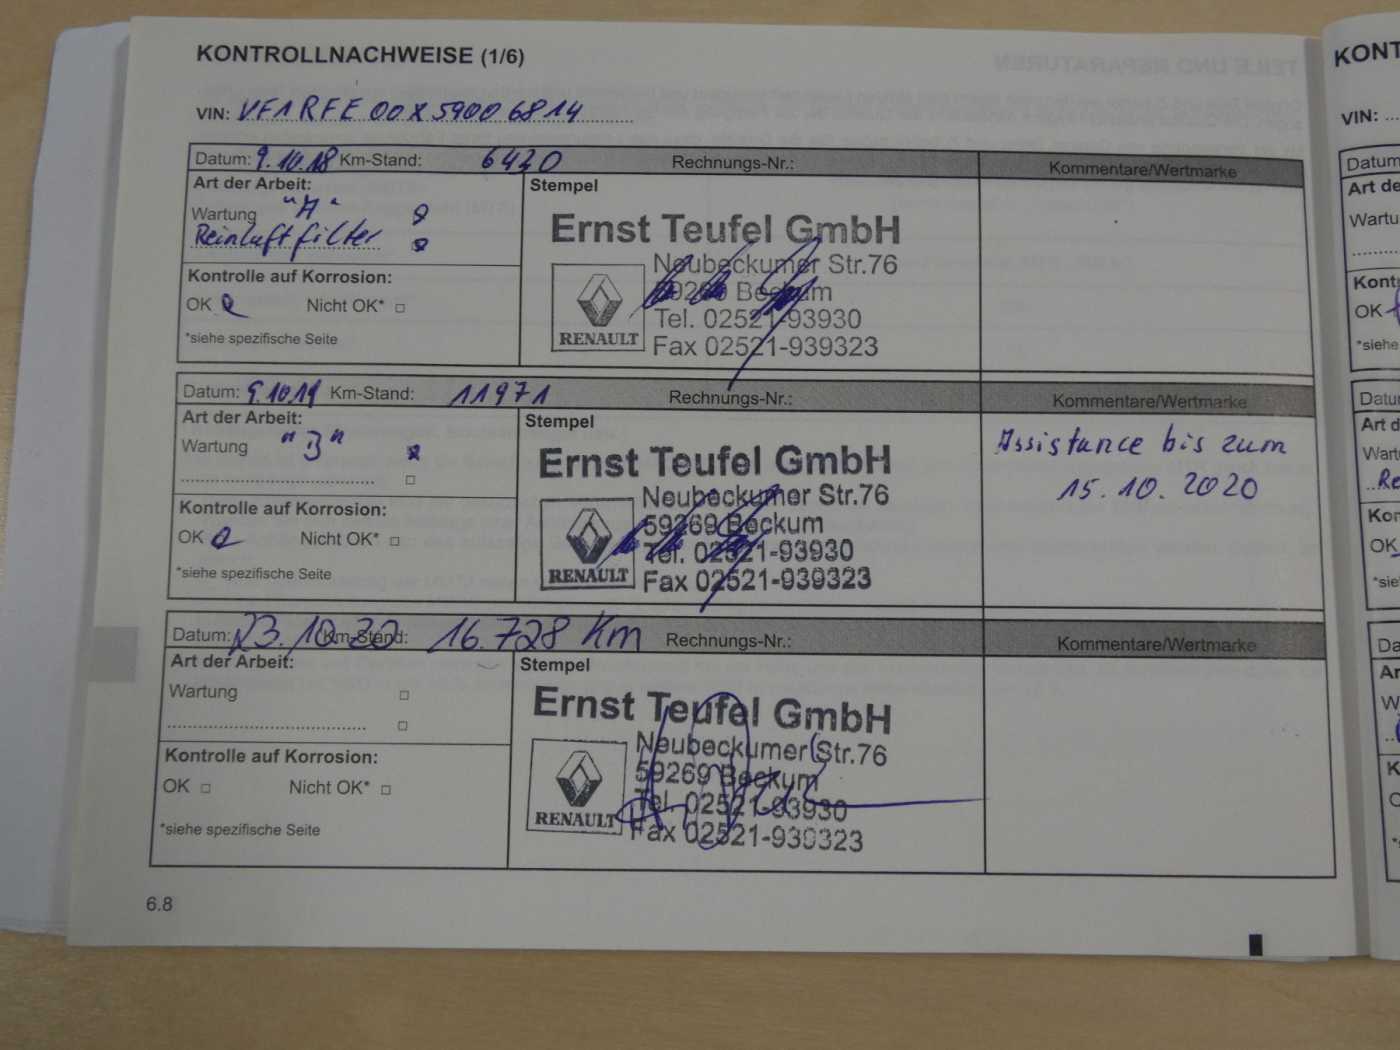 KONTROLLNACHWEISE (1/6)
VIN: VF1RFE00X59006814
Datum: 9.10.18 Km-Stand: 6420 Rechnungs-Nr.: Kommentare/Wertmarke
Art der Arbeit:
Stempel
Wartung "A"
Reinluftfilter
Ernst Teufel GmbH
Neubeckumer Str.76
59269 Beckum
Tel. 02521-93930
Fax 02521-939323
RENAULT
Kontrolle auf Korrosion:
OK Nicht OK*
*siehe spezifische Seite
Datum: 9.10.19 Km-Stand: 11971 Rechnungs-Nr.: Kommentare/Wertmarke
Art der Arbeit:
Stempel
Wartung "B"
Ernst Teufel GmbH
Neubeckumer Str.76
59269 Beckum
Tel. 02521-93930
Fax 02521-939323
RENAULT
Assistance bis zum
15.10.2020
Kontrolle auf Korrosion:
OK Nicht OK*
*siehe spezifische Seite
Datum: 23.10.20 Km-Stand: 16.728 Km Rechnungs-Nr.: Kommentare/Wertmarke
Art der Arbeit:
Stempel
Wartung
Ernst Teufel GmbH
Neubeckumer Str.76
59269 Beckum
Tel. 02521-93930
Fax 02521-939323
RENAULT
Kontrolle auf Korrosion:
OK Nicht OK*
*siehe spezifische Seite
6.8
VIN: